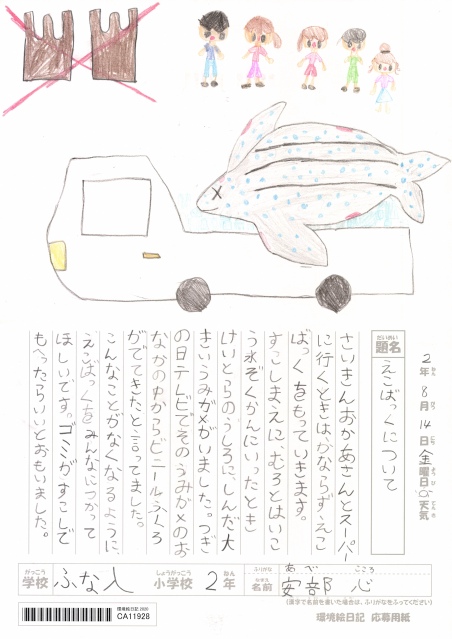 2年 8月 14日 金曜日 天気
だいめい
題名 えこばっくについて
さいきんおかあさんとスーパー
に行くときは、かならず、えこ
ばっくをもっていきます。
すこしまえに、むろとはいこ
う水ぞくかんにいったとき
けいとらのうしろに、しんだ大
きいうみがメがいました。つぎ
の日テレビでそのうみがメのお
なかの中からビニールぶくろ
がでてきたと言ってました。
こんなことがなくなるように、
えこばっくをみんなにつかって
ほしいです。ゴミがすこしで
もへったらいいとおもいました。
がっこう しょうがっこう ねん ふりがな あべ こころ
学校 ふな入 小学校 2年 なまえ 名前 安部 心
(漢字で名前を書いた場合は、ふりがなをふってください)
環境絵日記 2020
CA11928
環境絵日記 応募用紙